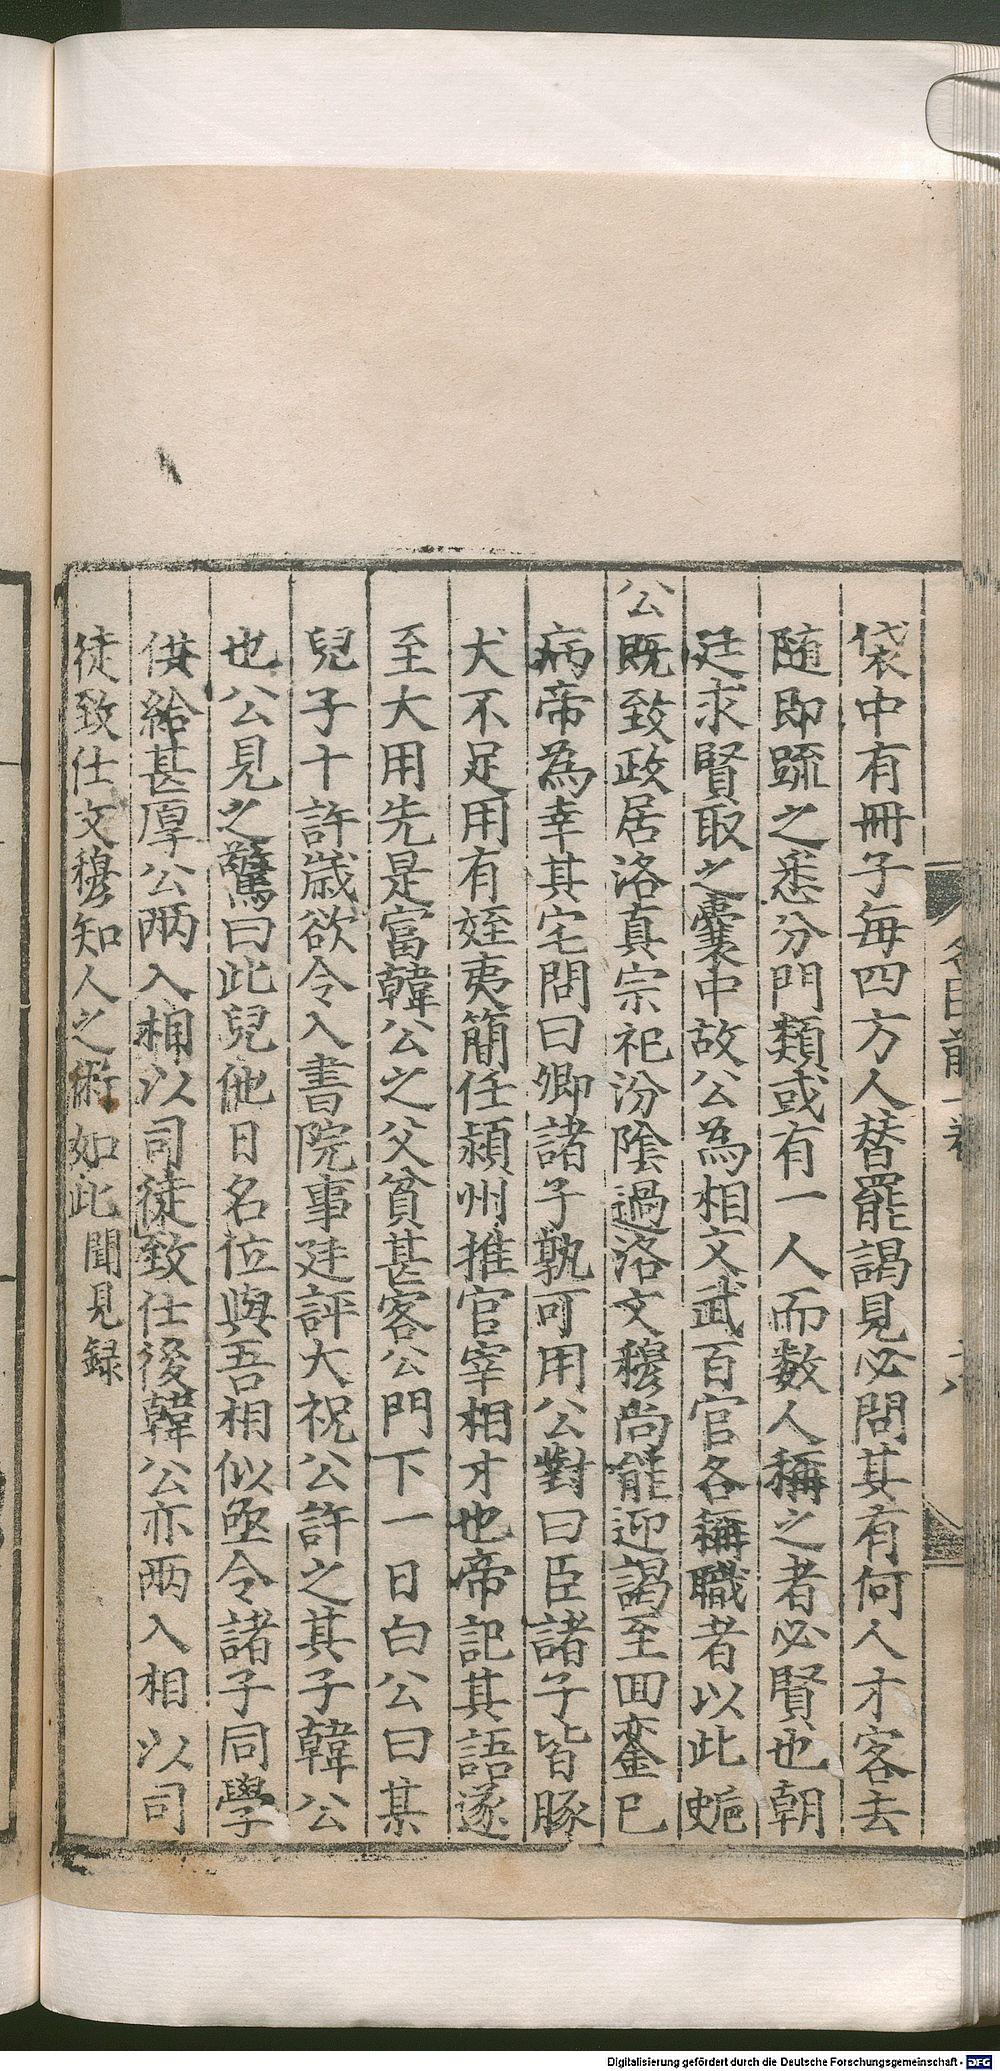 袋中有冊子每四方人替罷謁見必問其有何人才客去
隨即疏之悉分門類或有一人而數人稱之者必賢也朝
廷求賢取之囊中故公為相文武百官各稱職者以此
公既致政居洛真宗祀汾陰過洛文穆尚能迎謁至回鑾已
病帝為幸其宅問曰卿諸子孰可用公對曰臣諸子皆豚
犬不足用有姪夷簡任潁州推官宰相才也帝記其語遂
至大用先是富韓公之父貧甚客公門下一日白公曰某
兒子十許歲欲令入書院事廷評大祝公許之其子韓公
也公見之驚曰此兒他日名位與吾相似亟令諸子同學
供給甚厚公兩入相以司徒致仕後韓公亦兩入相以司
徒致仕文穆知人之術如此聞見録
名臣前一
Digitalisierung gefördert durch die Deutsche Forschungsgemeinschaft - DFG